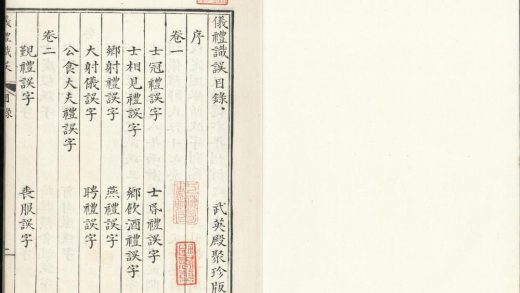 儀禮識誤目錄 武英殿聚珍版
序
卷一
士冠禮誤字 士昏禮誤字
士相見禮誤字 鄉飲酒禮誤字
鄉射禮誤字 燕禮誤字
大射儀誤字 聘禮誤字
公食大夫禮誤字
卷二
覲禮誤字 喪服誤字
儀禮識誤 目錄 一